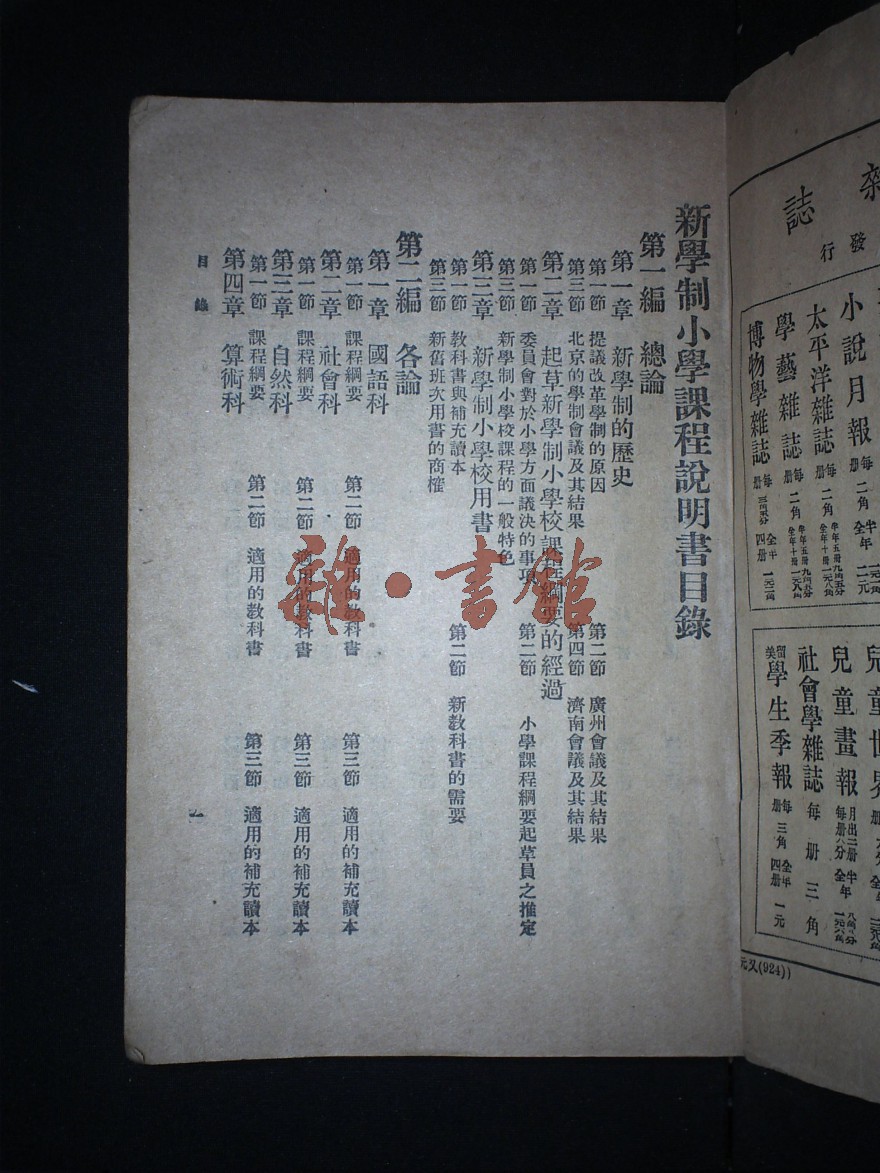 新學制小學課程說明書目錄
第一編　總論
第一章　新學制的歷史
第一節　提議改革學制的原因　第二節　廣州會議及其結果
第三節　北京的學制會議及其結果　第四節　濟南會議及其結果
第二章　起草新學制小學校課程綱要的經過
第一節　委員會對於小學方面議決的事項　第二節　小學課程綱要起草員之推定
第三節　新學制小學校課程的一般特色
第三章　新學制小學校用書
第一節　教科書與補充讀本　第二節　新教科書的需要
第三節　新舊班次用書的商榷
第二編　各論
第一章　國語科
第一節　課程綱要　第二節　適用的教科書　第三節　適用的補充讀本
第二章　社會科
第一節　課程綱要　第二節　適用的教科書　第三節　適用的補充讀本
第三章　自然科
第一節　課程綱要　第二節　適用的教科書　第三節　適用的補充讀本
第四章　算術科
目錄
一
雜·書館
雜誌
發行
小說月報 每册 二角
太平洋雜誌 每册 二角
學藝雜誌 每册 二角
博物學雜誌 每册
兒童世界
兒童畫報 月出二册 每册八分
社會學雜誌 每册三角
留美學生季報 每册 三角 全年四册 一元
元又(924))